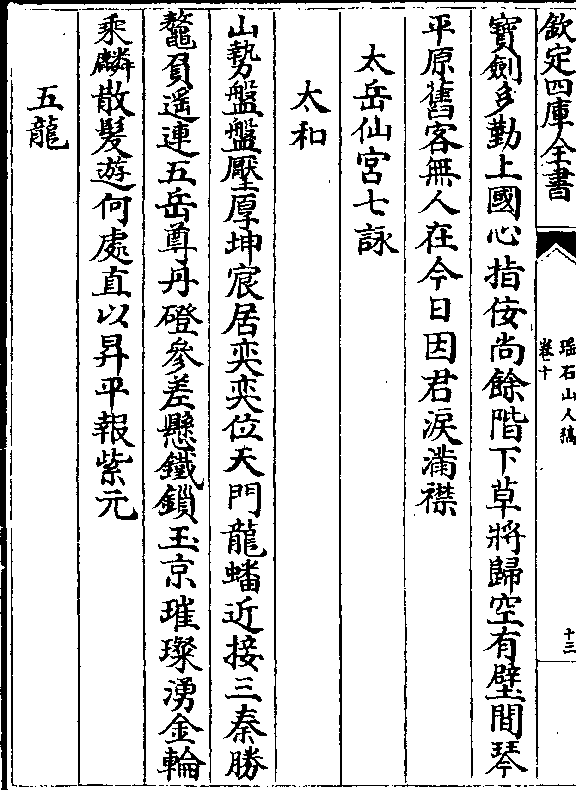 欽定四庫全書
瑶石山人稿
卷十
十三
寳劍多勤上國心指佞尚餘階下草將歸空有壁間琴
平原舊客無人在今日因君淚滿襟
太岳仙宮七詠
太和
山勢盤盤壓厚坤宸居奕奕位天門龍蟠近接三秦勝
鼇負遥連五岳尊丹磴參差懸鐵鎖玉京璀璨湧金輪
乘麟散髮遊何處直以昇平報紫元
五龍